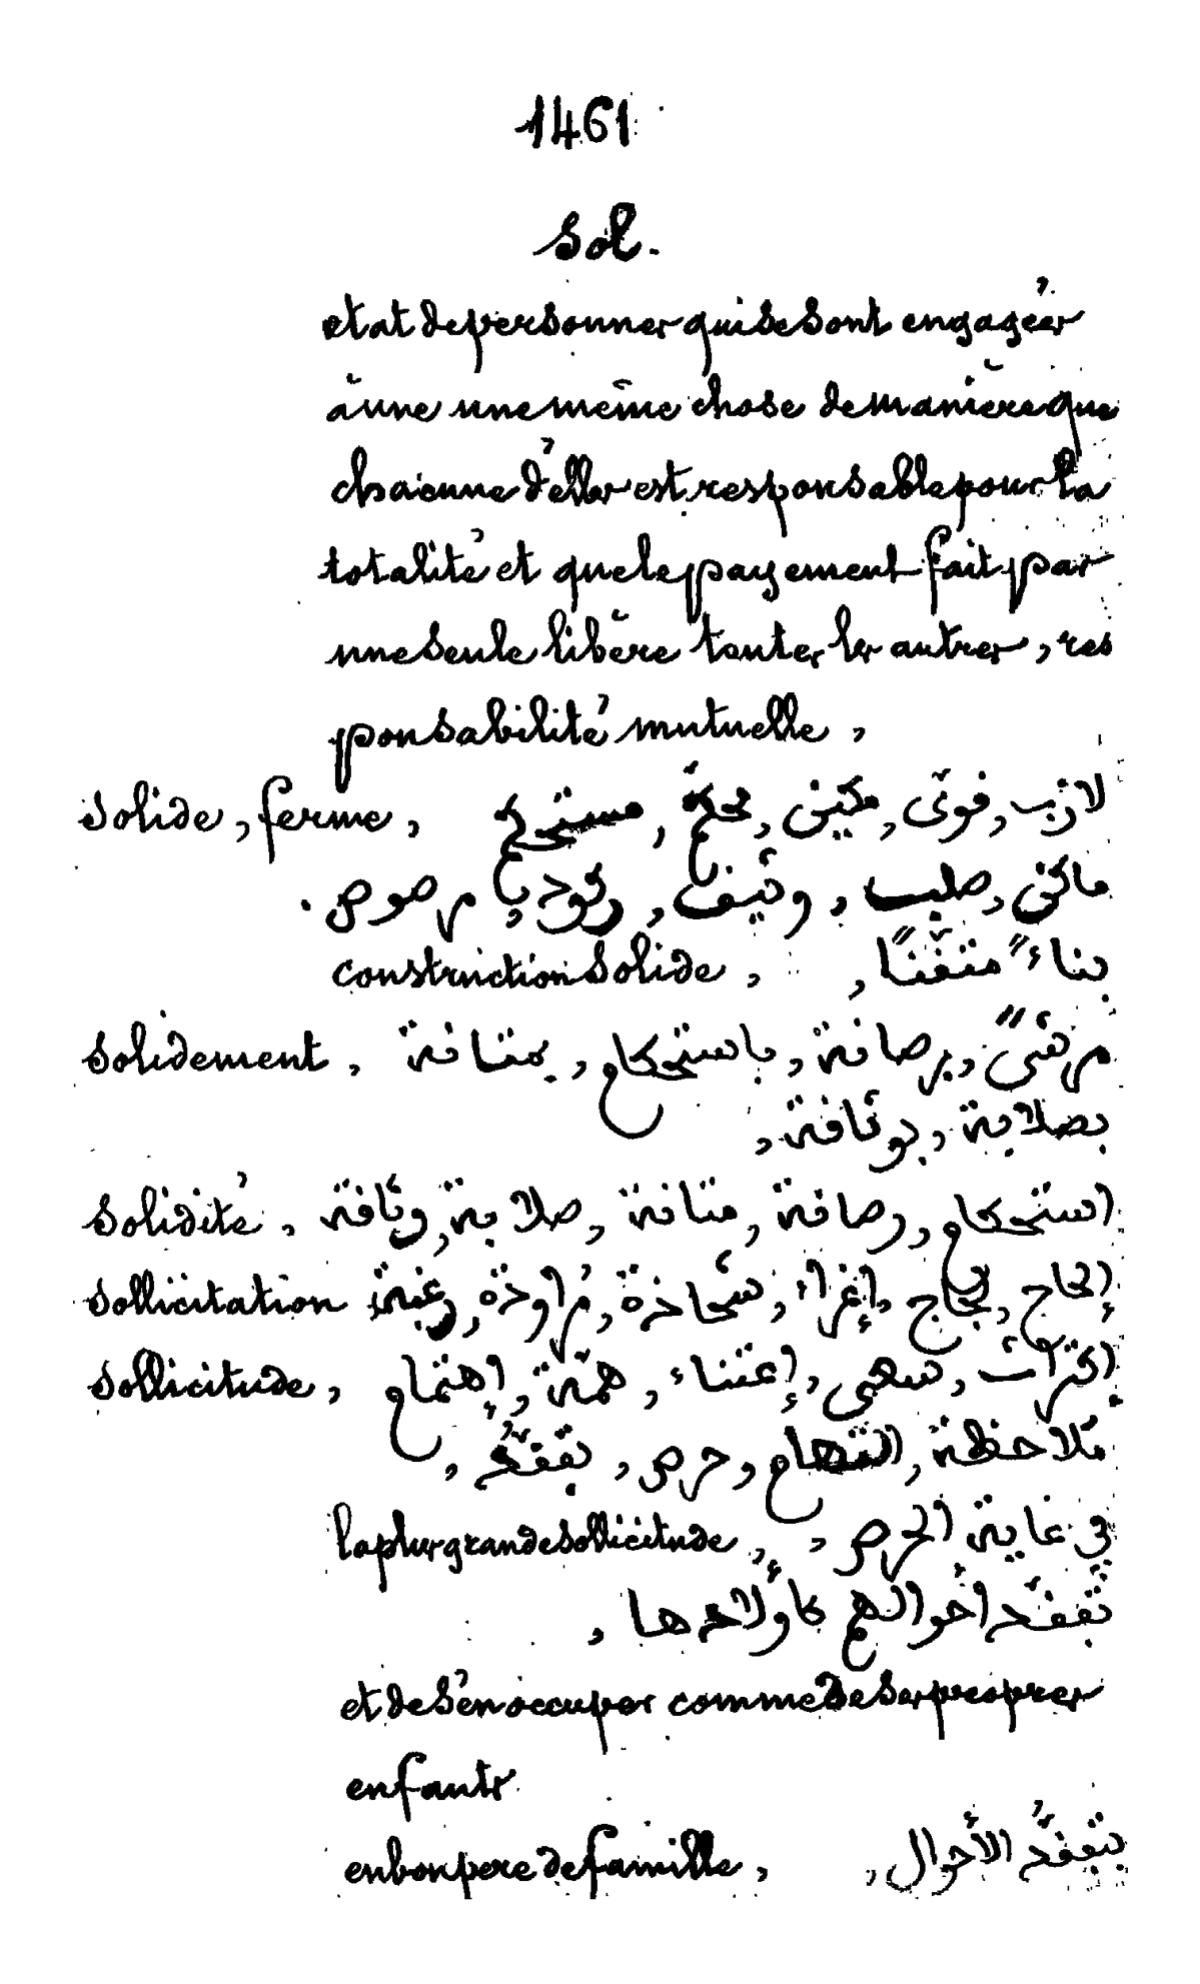 1461
Sol.
etat de personnes qui se sont engagées
à une une même chose de manière que
chacune d'elles est responsable pour la
totalité et que le payement fait par
une seule libère toutes les autres, res
ponsabilité mutuelle,
solide, ferme, لازب, قوىّ, مكين, محكمّ, مستحكم
ماكن, صلب, وثيق, ركود, مرصوص.
construction solide, بناءً متقّنًا,
solidement, مرسًى, برصانة, باستحكام, بمتانة
بصلابة, بوثاقة,
solidité, استحكام, رصانة, متانة, صلابة, وثاقة
sollicitation إلحاح, لجاج, إغراء, شحاذة, مُراودة, رغبة
sollicitude, إكتراث, سعى, إعتناء, همّة, إهتمام
مّلاحظة, التهام, حرص, تفقّد,
la plus grande sollicitude, في غاية الحرص,
تفقّد أحوالهم كأولادها,
et de s'en occuper comme de ses propres
enfants
en bon pere de famille, بتفقّد الأحوال,